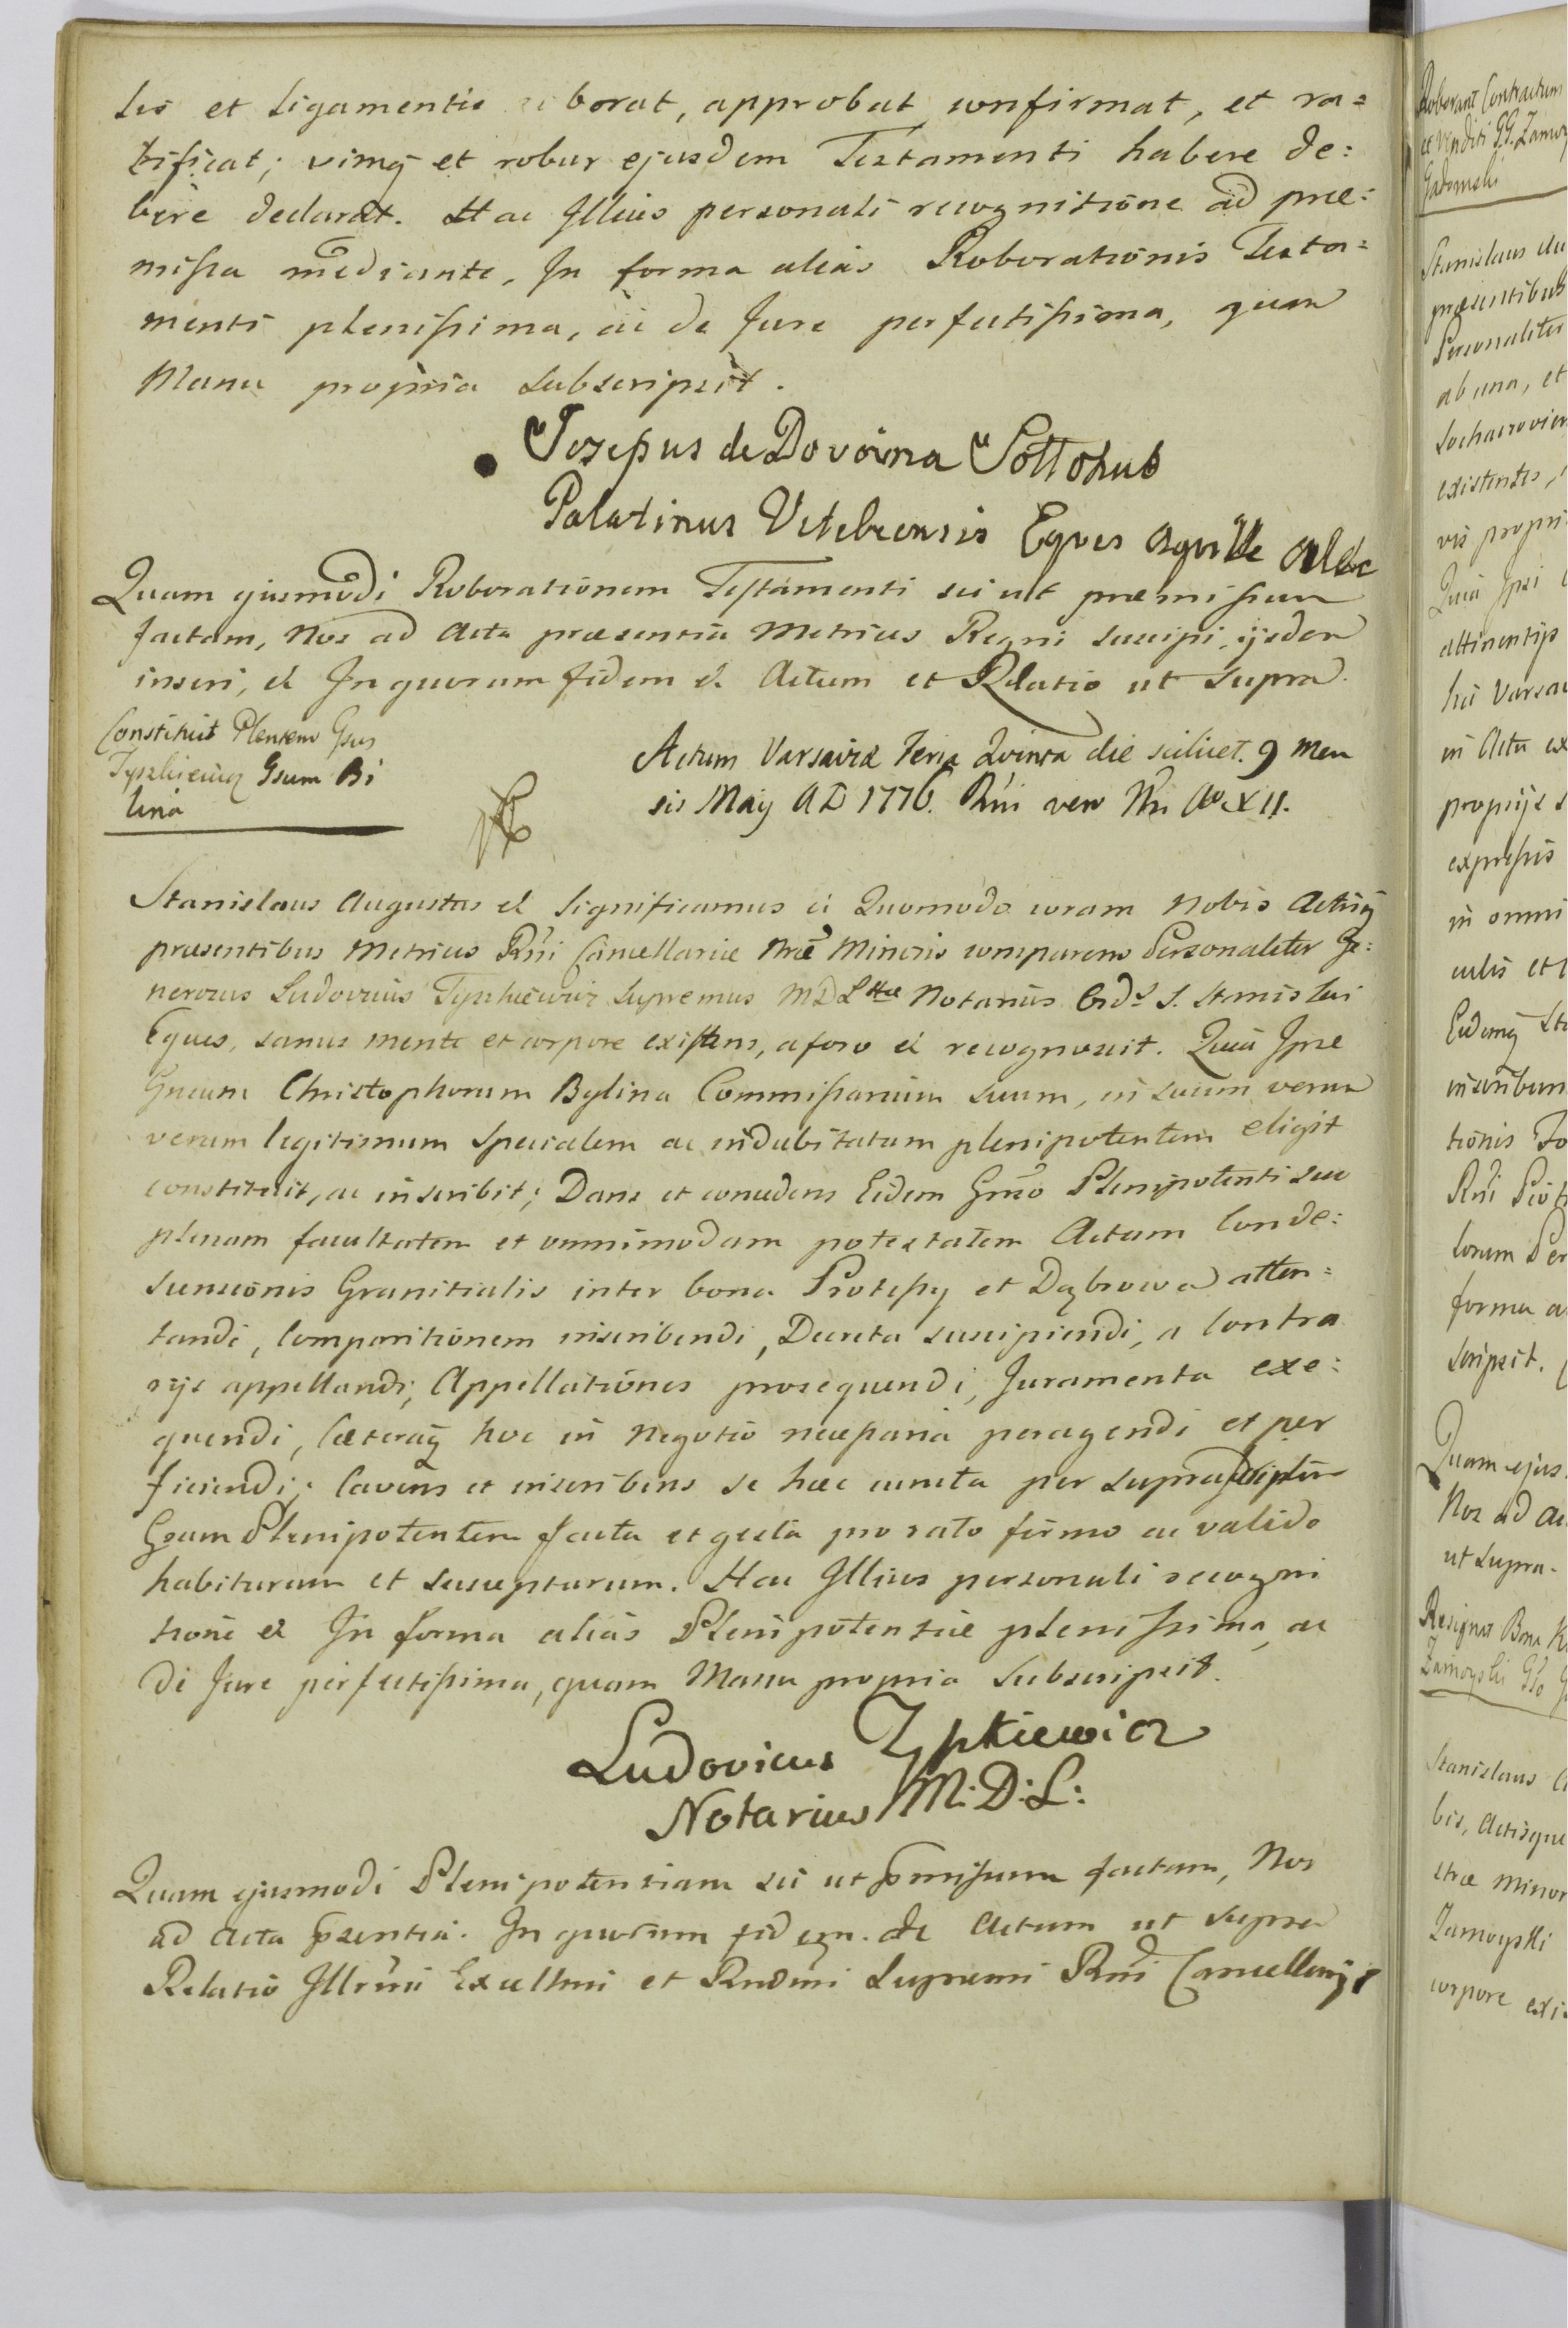 lis et ligamentis roborat, approbat, confirmat, et ra=
tificat; vimq et robur ejusdem Testamenti habere de:
bere declarat. Hac Illius personali recognitione ad præ:
missa mediante, In forma alias Roborationis Testa=
menti plenissima, ac de Jure perfectissima, quam
Manu propria subscripsit.
Josepus de Dovoina Sollohub
Palatinus Vitebcensis Eques Aquille Albe
Quam ejusmodi Roborationem Testamenti sui ut præmissum
factam, Nos ad Acta præsentia Metrices Regni suscipi, ijsdem
inseri, et In quorum fidem et Actum et Relatio ut supra.
Constituit Plentem Gsus
Tyszkiewicz Gsum Bi
lina
Actum Varsaviæ Feria Quinta die scilicet. 9 Men
sis Maij AD 1776. Rni vero Nri Ao XII.
Stanislaus Augustus et Significamus et Quomodo coram Nobis Actisq
præsentibus Metrices Rni Cancellariæ Nræ Minoris comparens Personaliter Ge:
nerosus Ludovicus Tyszkiewicz Supremus MDLttæ Notarius Ord. S. Stanislai
Eques, sanus mente et corpore existens, aforo et recognovit. Quia Ipse
Gneum Christophorum Bylina Commissarium suum, in suum verum
verum legitimum specialem ac indubitatum plenipotentem eligit
constituit, ac inscribit; Dans et concedens Eidem Gnso Plenipotenti suo
plenam facultatem et omnimodam potestatem Actum Conde:
scensionis Granitialis inter bona Protessy et Dąbrowa atten=
tandi, Comparitionem inscribendi, Decreta suscipiendi, a Contra
rijs appellandi, Appellationes prosequendi, Juramenta exe:
quendi, Cæteraq hoc in Negotio necessaria peragendi et per
ficiendi; Cavens et inscribens se hæc cuncta per suprascriptum
Gsum Plenipotentem facta et gesta pro rato firmo ac valido
habiturum et suscepturum. Hac Illius personali recogni
tione et In forma alias Plenipotentiæ plenissima, ac
de Jure perfectissima, quam Manu propria subscripsit.
Ludovicus Tyszkiewicz
Notarius M:D:L:
Quam ejusmodi Plenipotentiam sui ut pmissum factam, Nos
ad Acta psentia. In quorum fidem. et Actum ut supra
Relatio Illrmi Excellmi et Rndmi Supremi Rni Cancellarij
Roborant Contractum
Venditi GG. Zamoy
Gadomski
Stanislaus Au
præsentibus
Personaliter
ab una, et
Sochaczovien
existentes,
vis propri
Quia Ipsi
attinentijs
hic Varsav
in Actu ex
propriis s
expressis
in omni
culis et
Eidemq Sta
inscribun
tionis Fo
Rni
lorum Per
forma a
scripsit.
Quam ejus
Nos ad Ac
ut supra.
Resignat Bona
Zamoyski
Stanislaus A
bis, Actisque
stræ Minor
Zamoyski
corpore exis